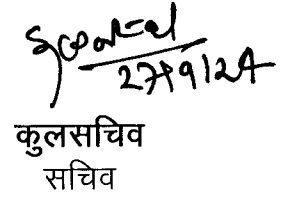 27/9/24
कुलसचिव
सचिव